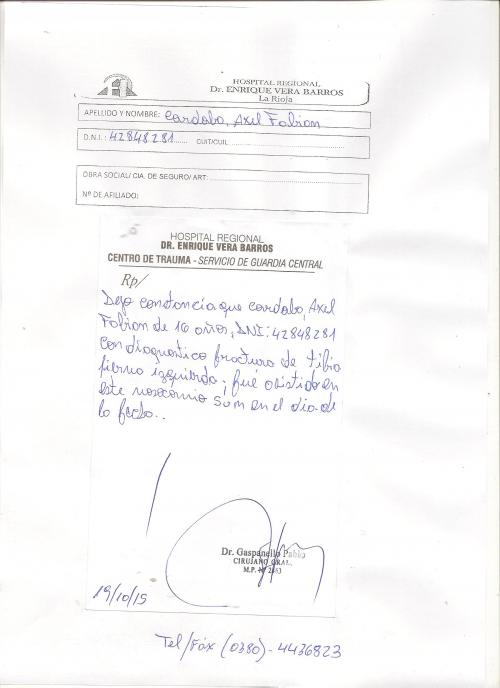 HOSPITAL REGIONAL
Dr. ENRIQUE VERA BARROS
La Rioja
APELLIDO Y NOMBRE: Cordoba, Axel Fabian
D.N.I.: 42848281 CUIT/CUIL
OBRA SOCIAL/ CIA. DE SEGURO/ ART:
Nº DE AFILIADO:
HOSPITAL REGIONAL
DR. ENRIQUE VERA BARROS
CENTRO DE TRAUMA - SERVICIO DE GUARDIA CENTRAL
Rp/
Dejo constancia que Cordoba, Axel
Fabian de 16 años, DNI: 42848281
con diagnostico fractura de tibia
pierna izquierda; fué asistido en
este nosocomio en el dia de
la fecha..
Dr. Gaspanello Pablo
CIRUJANO GRAL.
M.P. Nº
19/10/15
Tel/Fáx (0380)-4436823